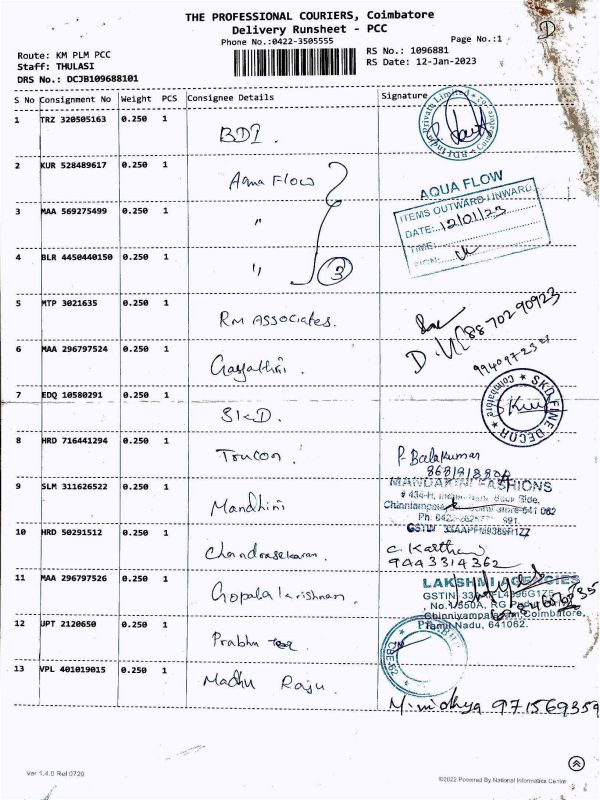 THE PROFESSIONAL COURIERS, Coimbatore
Delivery Runsheet - PCC
Phone No.:0422-3505555
Page No.:1
D
Route: KM PLM PCC
Staff: THULASI
DRS No.: DCJB109688101
RS No.: 1096881
RS Date: 12-Jan-2023
S No Consignment No Weight PCS Consignee Details Signature
1 TRZ 320505163 0.250 1 BDI.
2 KUR 528489617 0.250 1 Aqua Flow
AQUA FLOW
ITEMS OUTWARD / INWARD
3 MAA 569275499 0.250 1 "
DATE: 12/01/23
TIME:
SIGN:
4 BLR 4450440150 0.250 1 " 3
5 MTP 3021635 0.250 1 RM ASSOCIATES.
8870290923
6 MAA 296797524 0.250 1 Gayathini.
7 EDQ 10580291 0.250 1 SKD.
SKD FINE DECOR * Coimbatore *
8 HRD 716441294 0.250 1 Trucon.
P. Balakumar
9 SLM 311626522 0.250 1 Mandhini
MANDAKINI FASHIONS
10 HRD 50291512 0.250 1 Chandrasekaran.
9443314362
11 MAA 296797526 0.250 1 Gopalakrishnan.
LAKSHMI AGENCIES
Chinniyampalayam, Coimbatore,
Tamil Nadu, 641062.
12 UPT 2120650 0.250 1 Prabhu
13 VPL 401019015 0.250 1 Madhu Raju.
971569359
Ver 1.4.0 Rel 0720
©2022 Powered By National Informatics Centre